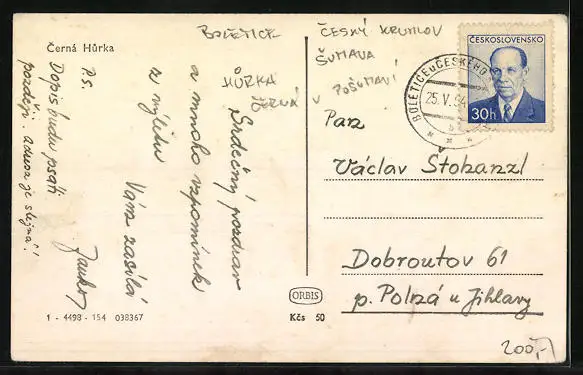 Černá Hůrka
BOLETICE
HŮRKA
ČERNÁ
ČESKÝ KRUMLOV
ŠUMAVA
V POŠUMAVÍ
ČESKOSLOVENSKO
30h
BOLETICE u ČESKÉHO
25.V.54
Srdečný pozdrav
a mnoho vzpomínek
z výletu
Vám zasílá
P.S.
Dopis budu psáti
později. adresa je stejná!
Pan
Václav Stokanzl
Dobroutov 61
p. Polná u Jihlavy
ORBIS
Kčs 50
1 - 4498 - 154 038367
200,-